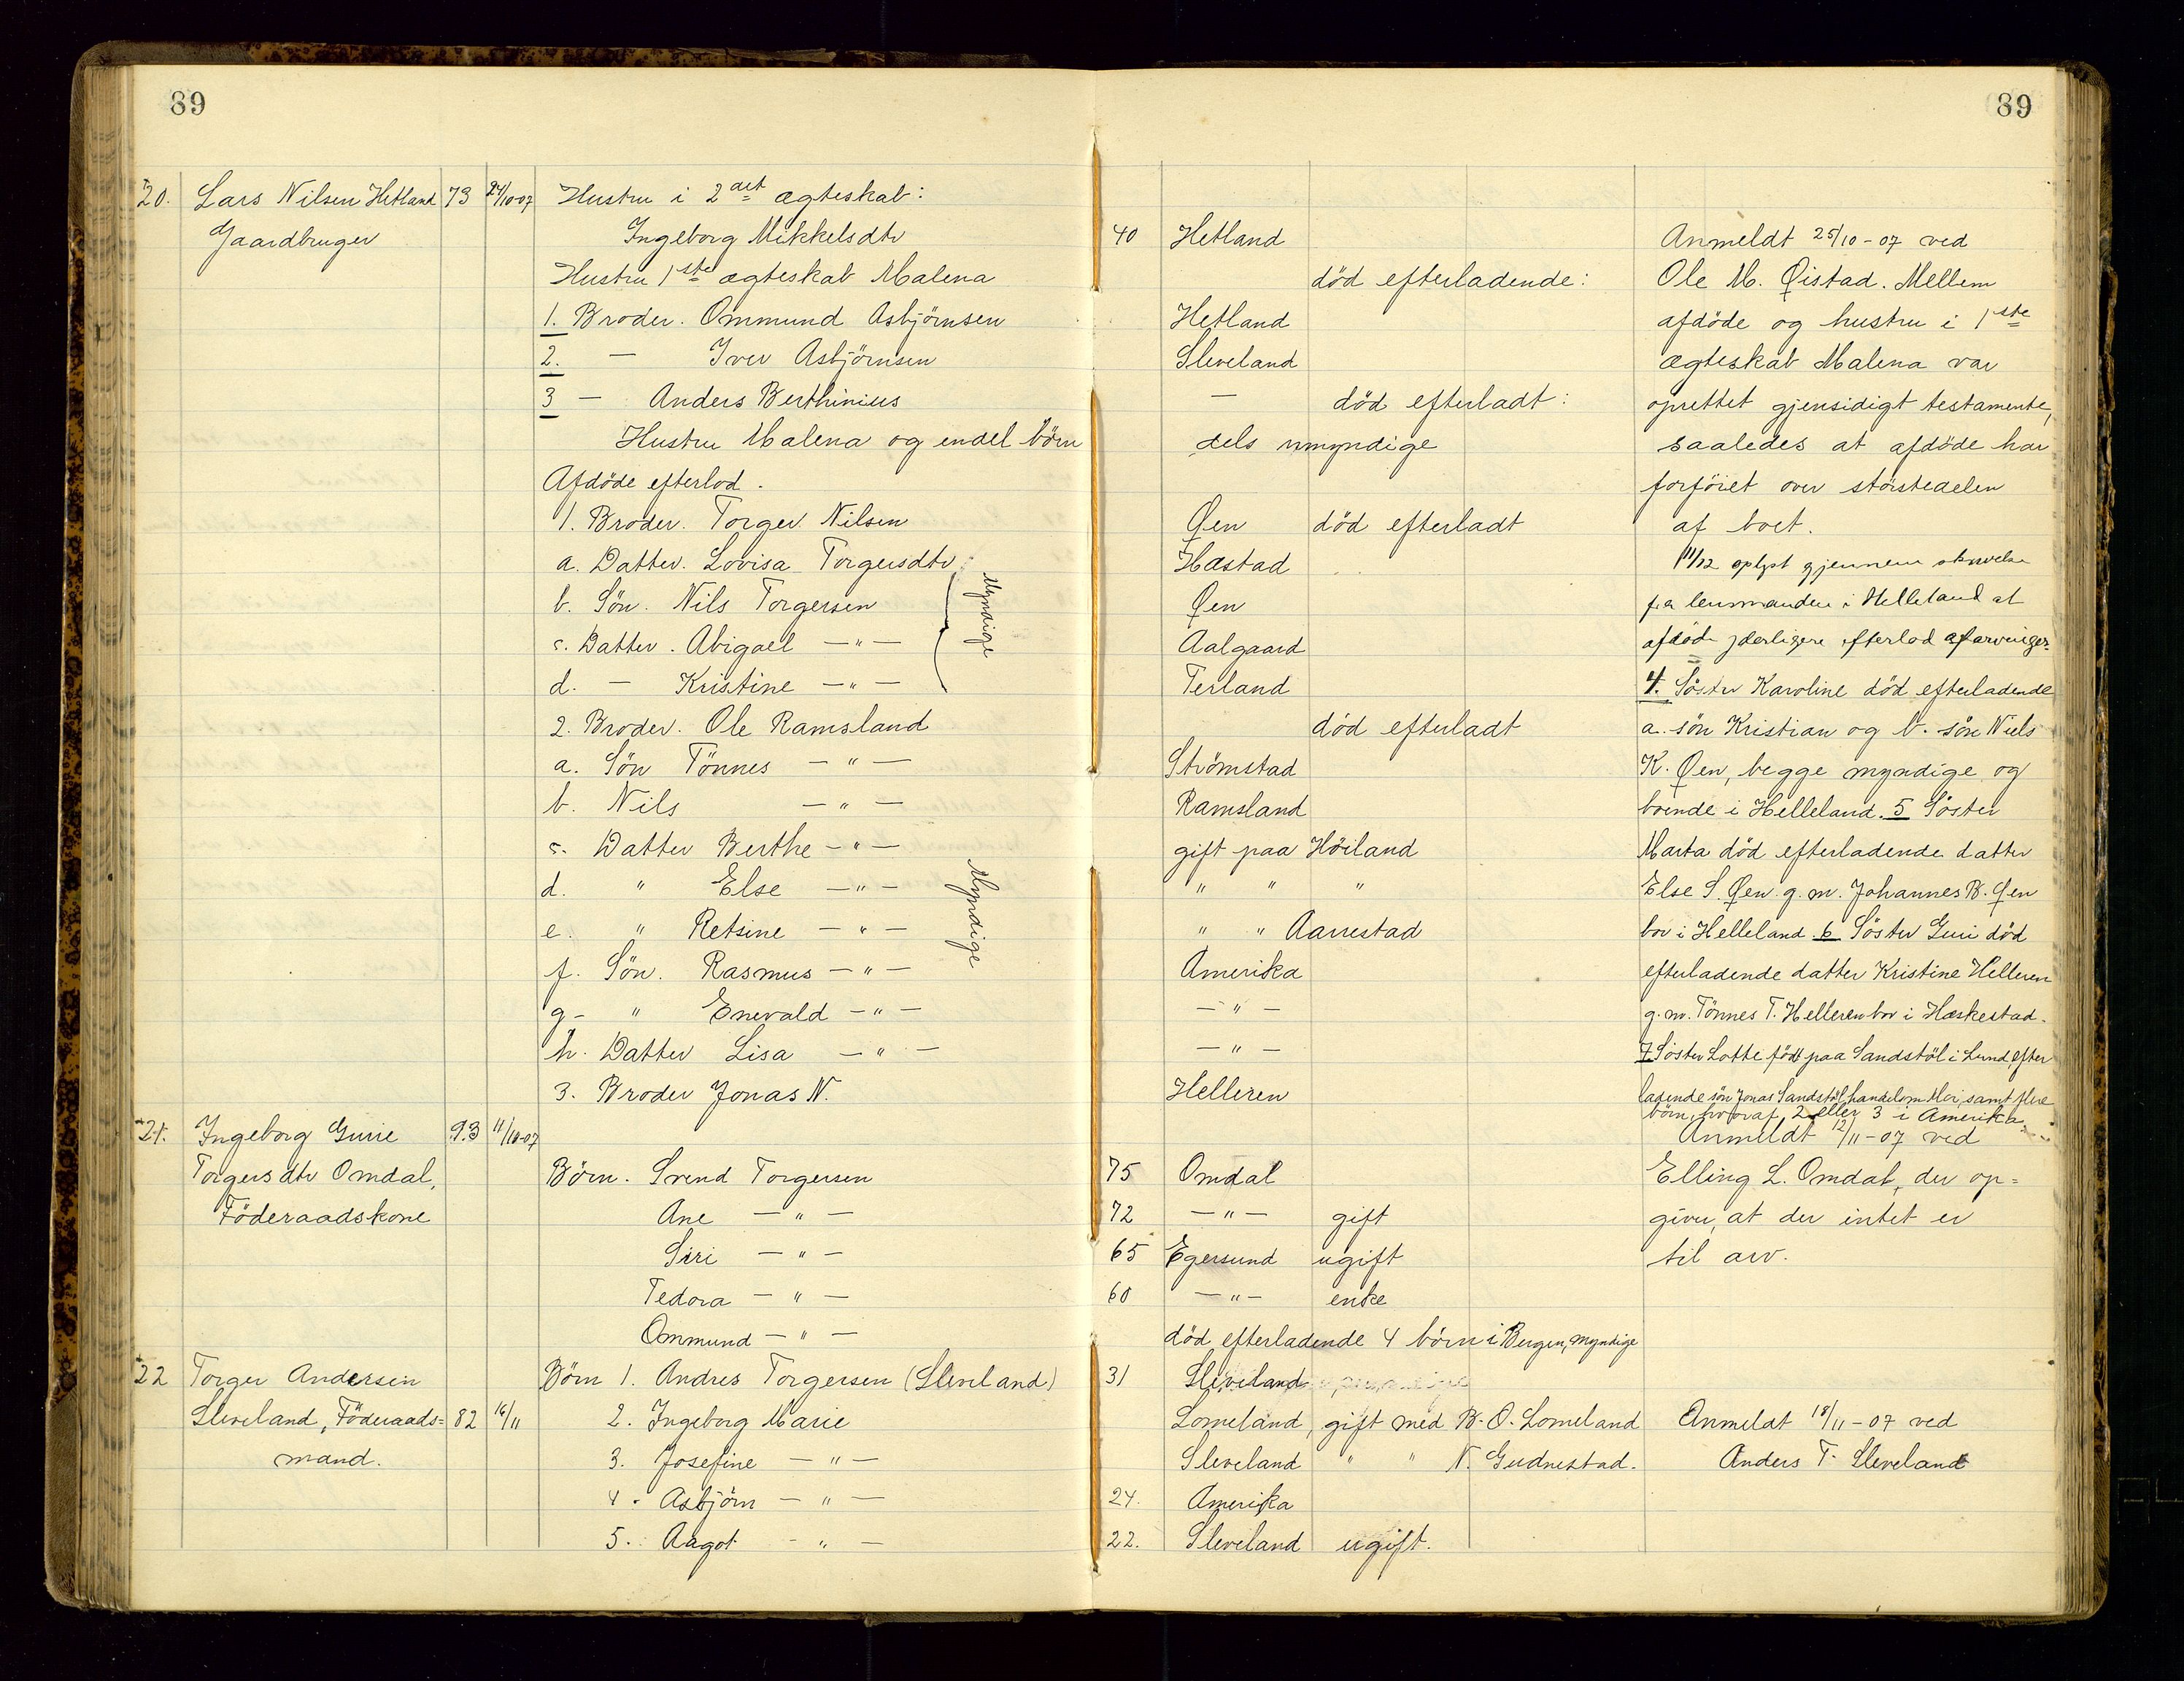 89
20. Lars Nilsen Hetland 73 24/10-07 Hustru i 2det ægteskab:
Gaardbruger Ingeborg Mikkelsdtr
Hustru 1ste ægteskab Malena
1. Broder. Ommund Asbjörnsen
2. — Iver Asbjörnsen
3 — Anders Berthinius
Hustru Malena og endel börn
Afdöde efterlod.
1. Broder. Torger Nilsen
a. Datter. Lovisa Torgersdtr
b. Sön. Nils Torgersen
c. Datter. Abigael —"—
d. — Kristine —"—
Myndige
2. Broder. Ole Ramsland
a. Sön Tönnes —"—
b. Nils —"—
c. Datter Berthe —"—
d. " Else —"—
e. " Retsine —"—
f. Sön. Rasmus —"—
g- " Enevald —"—
h. Datter Lisa —"—
Myndige
3. Broder Jonas N.
21. Ingeborg Gurie 93 11/10-07
Torgersdtr Omdal, Börn. Svend Torgersen
Föderaadskone Ane —"—
Siri —"—
Tedora —"—
Ommund —"—
22 Torger Andersen Börn 1. Andres Torgersen (Sleveland)
Sleveland, Föderaads= 82 16/11 2. Ingeborg Marie
mand. 3. Josefine —"—
4. Asbjörn —"—
5. Aagot —"—
89
40 Hetland
död efterladende:
Hetland
Sleveland
— död efterladt:
dels umyndige
Øen död efterladt
Hæstad
Øen
Aalgaard
Terland
död efterladt
Strömstad
Ramsland
gift paa Höiland
" " "
" " Aarrestad
Amerika
—"—
—"—
Helleren
75 Omdal
72 —"— gift
65 Egersund ugift
60 —"— enke
död efterladende 4 börn i Bergen, myndige
31 Sleveland
Lomeland, gift med B. O. Lomeland
Sleveland " " N. Gudnestad.
24. Amerika
22. Sleveland ugift.
Anmeldt 25/10-07 ved
Ole M. Øistad. Mellem
afdöde og hustru i 1ste
ægteskab Malena var
oprettet gjensidigt testamente,
saaledes at afdöde har
forföiet over störstedelen
af boet.
11/12 oplyst gjennem skrivelse
fra lensmanden i Helleland at
afdöde yderligere efterlod af arvinger.
4. Söster Karoline död efterladende
a. sön Kristian og b. sön Niels
K. Øen, begge myndige og
boende i Helleland. 5 Söster
Marta död efterladende datter
Else S. Øen g. m. Johannes B. Øen
bor i Helleland. 6 Söster Guri död
efterladende datter Kristine Helleren
g. m. Tönnes T. Helleren bor i Hæskestad.
7 Söster Lotte död paa Sandstöl i Lund, efter
ladende sön Jonas Sandstöl, handelsm Moi, samt flere
börn, hvoraf 2 eller 3 i Amerika.
Anmeldt 12/11-07 ved
Elling L. Omdal, der op=
giver, at der intet er
til arv.
Anmeldt 18/11-07 ved
Anders T. Sleveland